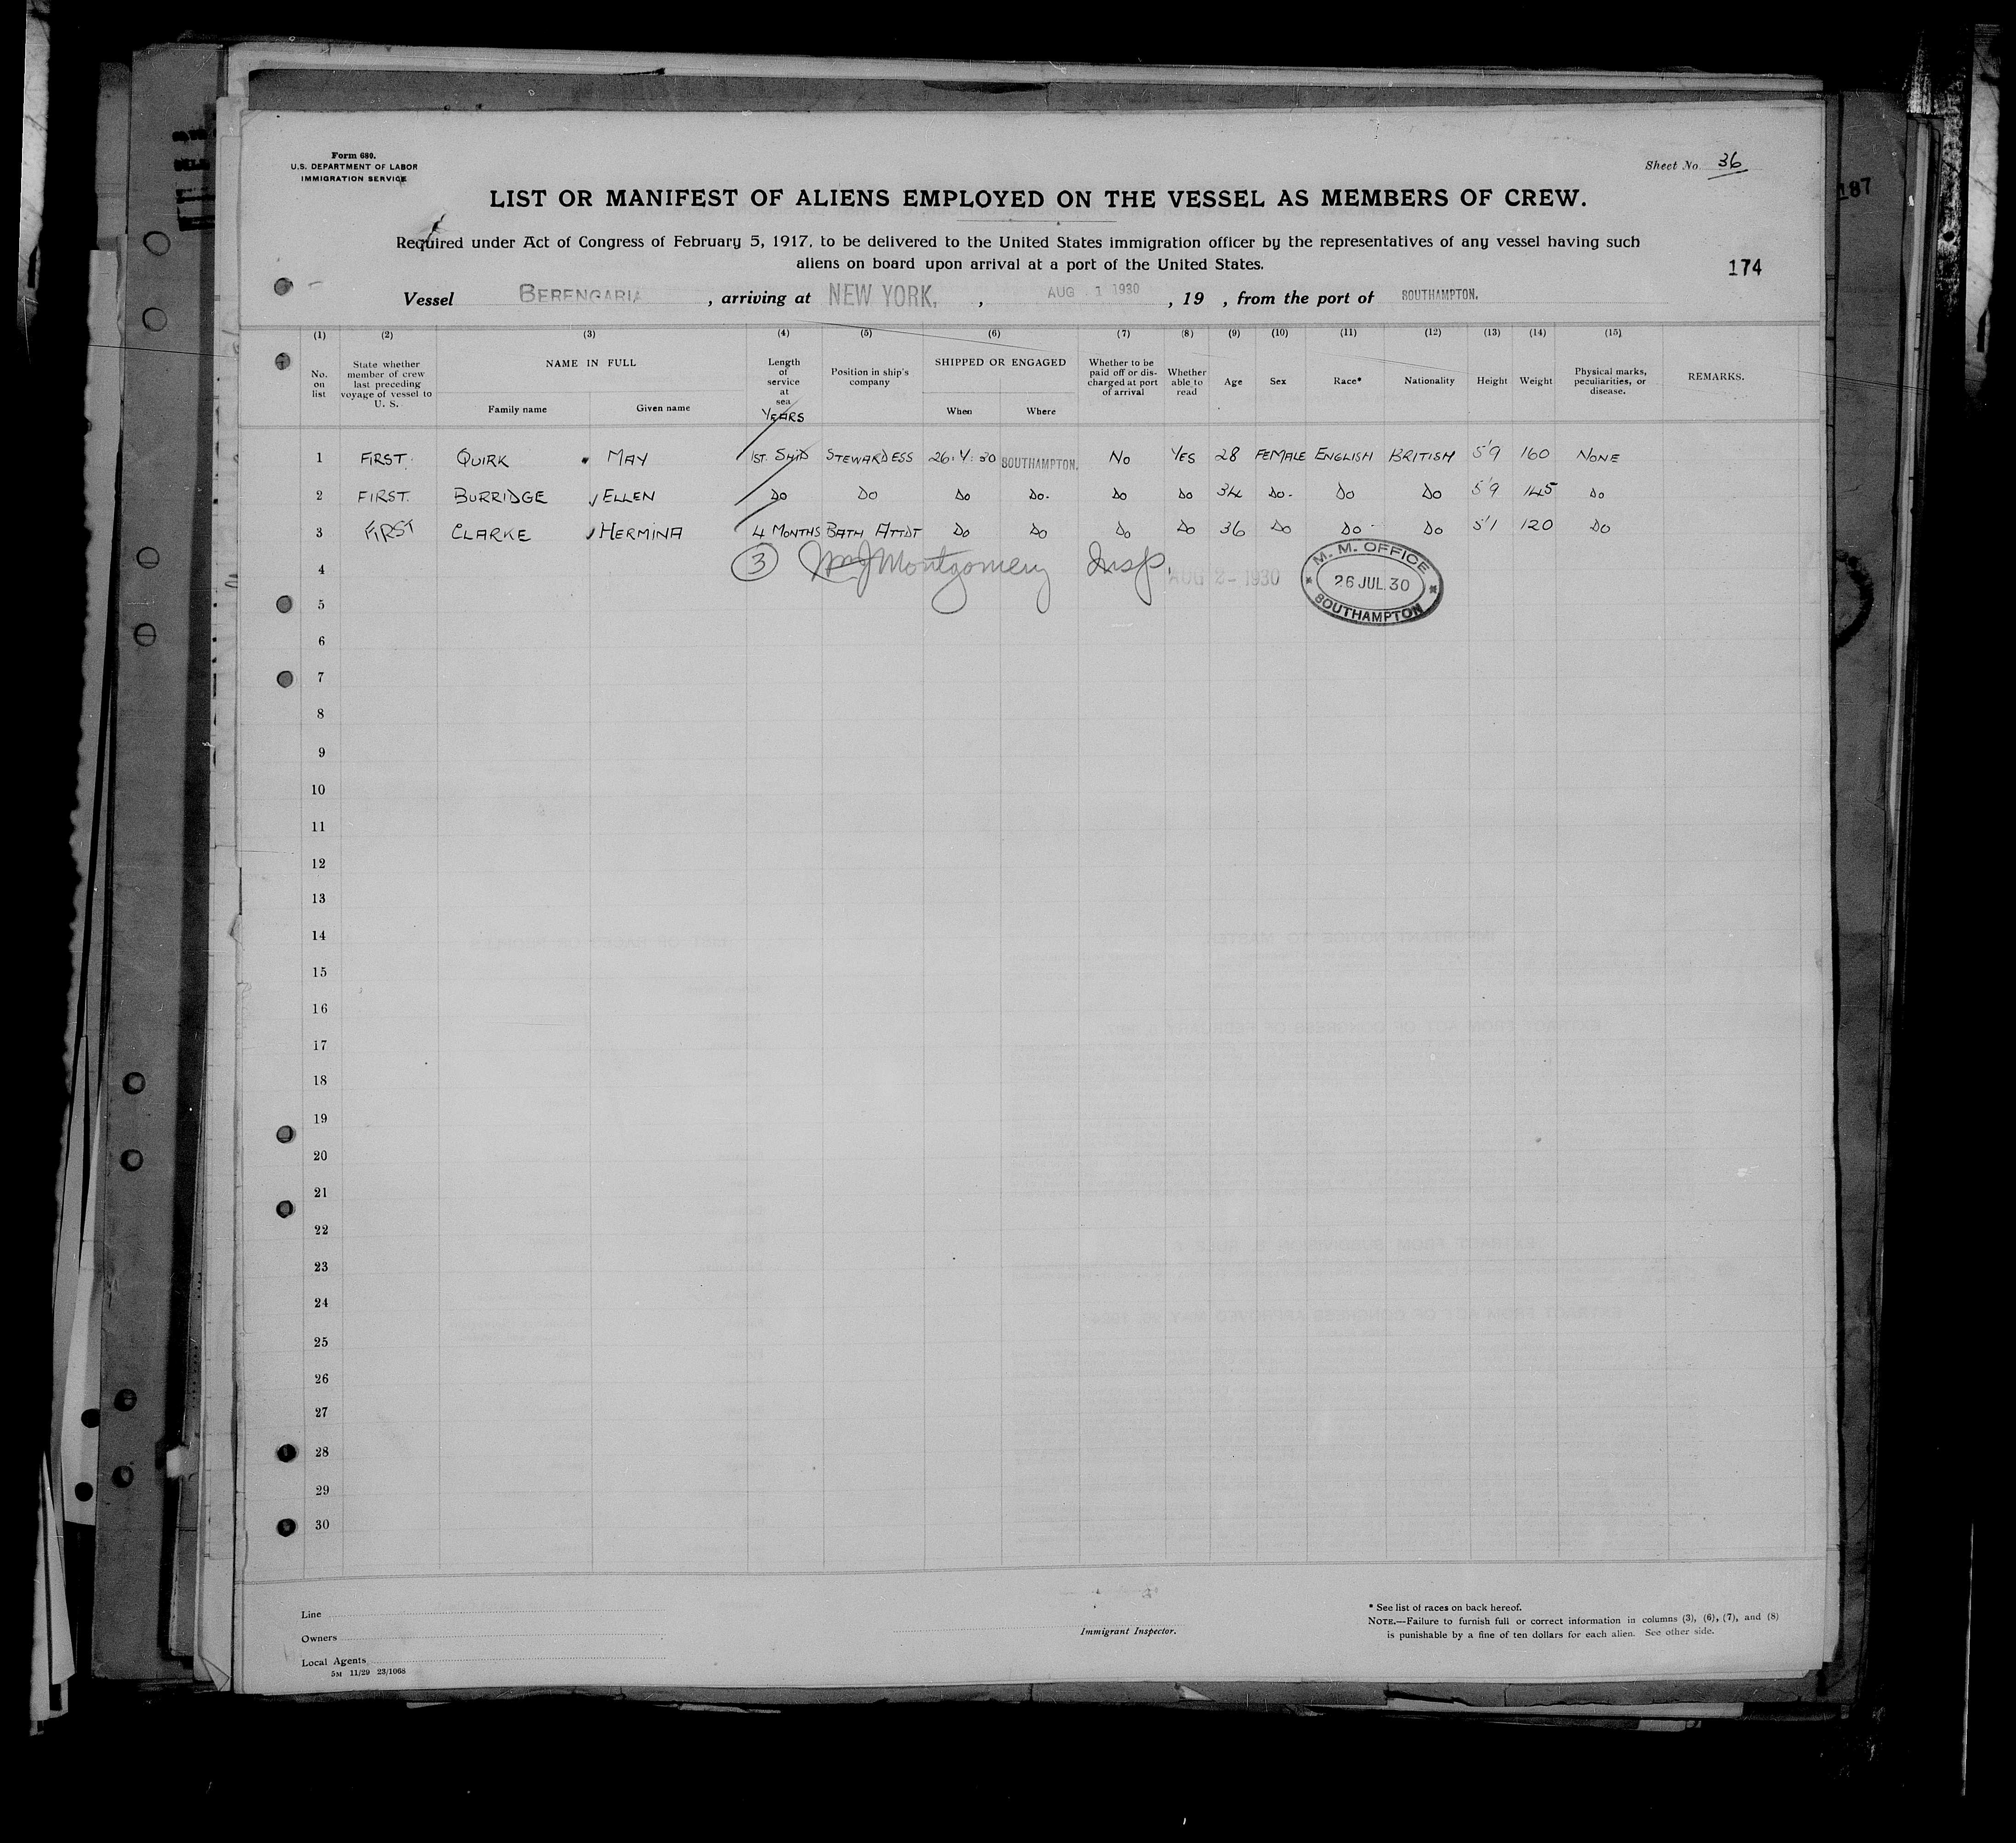 Form 680.
U.S. DEPARTMENT OF LABOR
IMMIGRATION SERVICE
Sheet No. 36
187
LIST OR MANIFEST OF ALIENS EMPLOYED ON THE VESSEL AS MEMBERS OF CREW.
Required under Act of Congress of February 5, 1917, to be delivered to the United States immigration officer by the representatives of any vessel having such
aliens on board upon arrival at a port of the United States.
174
Vessel BERENGARIA, arriving at NEW YORK, , AUG 1 1930, 19 , from the port of SOUTHAMPTON.
(1) (2) (3) (4) (5) (6) (7) (8) (9) (10) (11) (12) (13) (14) (15)
No. on list
State whether member of crew last preceding voyage of vessel to U. S.
NAME IN FULL
Family name
Given name
Length of service at sea
YEARS
Position in ship's company
SHIPPED OR ENGAGED
When
Where
Whether to be paid off or dis-charged at port of arrival
Whether able to read
Age
Sex
Race*
Nationality
Height
Weight
Physical marks, peculiarities, or disease.
REMARKS.
1 FIRST. QUIRK MAY 1ST. SHIP STEWARDESS 26.7.30 SOUTHAMPTON. NO YES 28 FEMALE ENGLISH BRITISH 5'9 160 NONE
2 FIRST. BURRIDGE ELLEN DO DO DO DO. DO DO 34 DO. DO DO 5'9 145 DO
3 FIRST CLARKE HERMINA 4 MONTHS BATH ATTDT DO DO DO DO 36 DO DO DO 5'1 120 DO
4 3 Wm J Montgomery Insp. AUG 2- 1930
M. M. OFFICE
26 JUL. 30
SOUTHAMPTON
5
6
7
8
9
10
11
12
13
14
15
16
17
18
19
20
21
22
23
24
25
26
27
28
29
30
Line
Owners
Local Agents
5M 11/29 23/1068
Immigrant Inspector.
* See list of races on back hereof.
NOTE.—Failure to furnish full or correct information in columns (3), (6), (7), and (8)
is punishable by a fine of ten dollars for each alien. See other side.